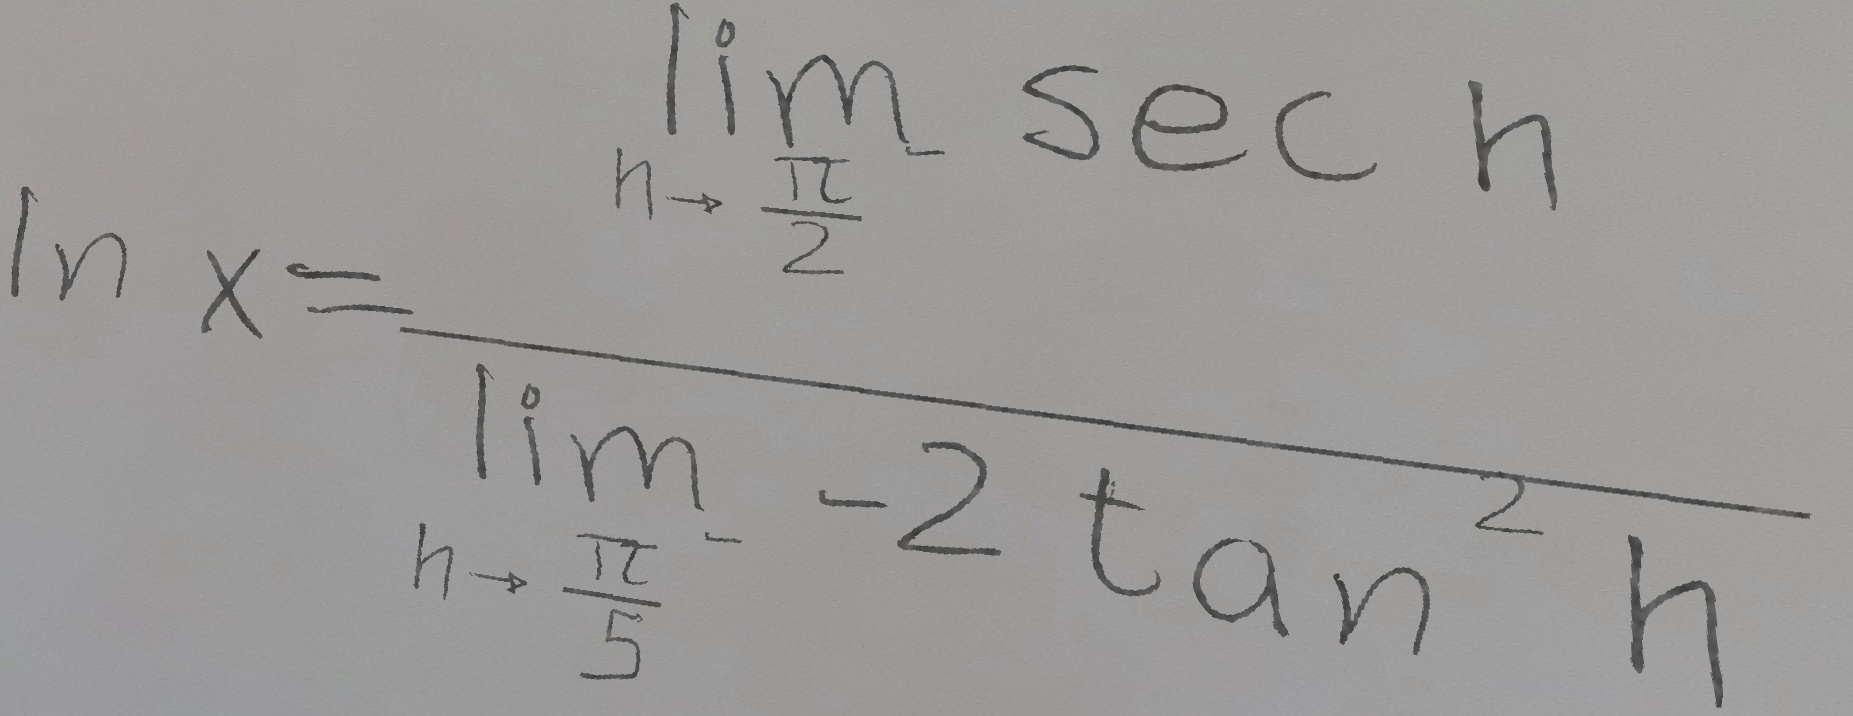 ln x = \frac{\lim_{h \to \frac{\pi}{2}^-} \sec h}{\lim_{h \to \frac{\pi}{5}^-} -2 \tan^2 h}